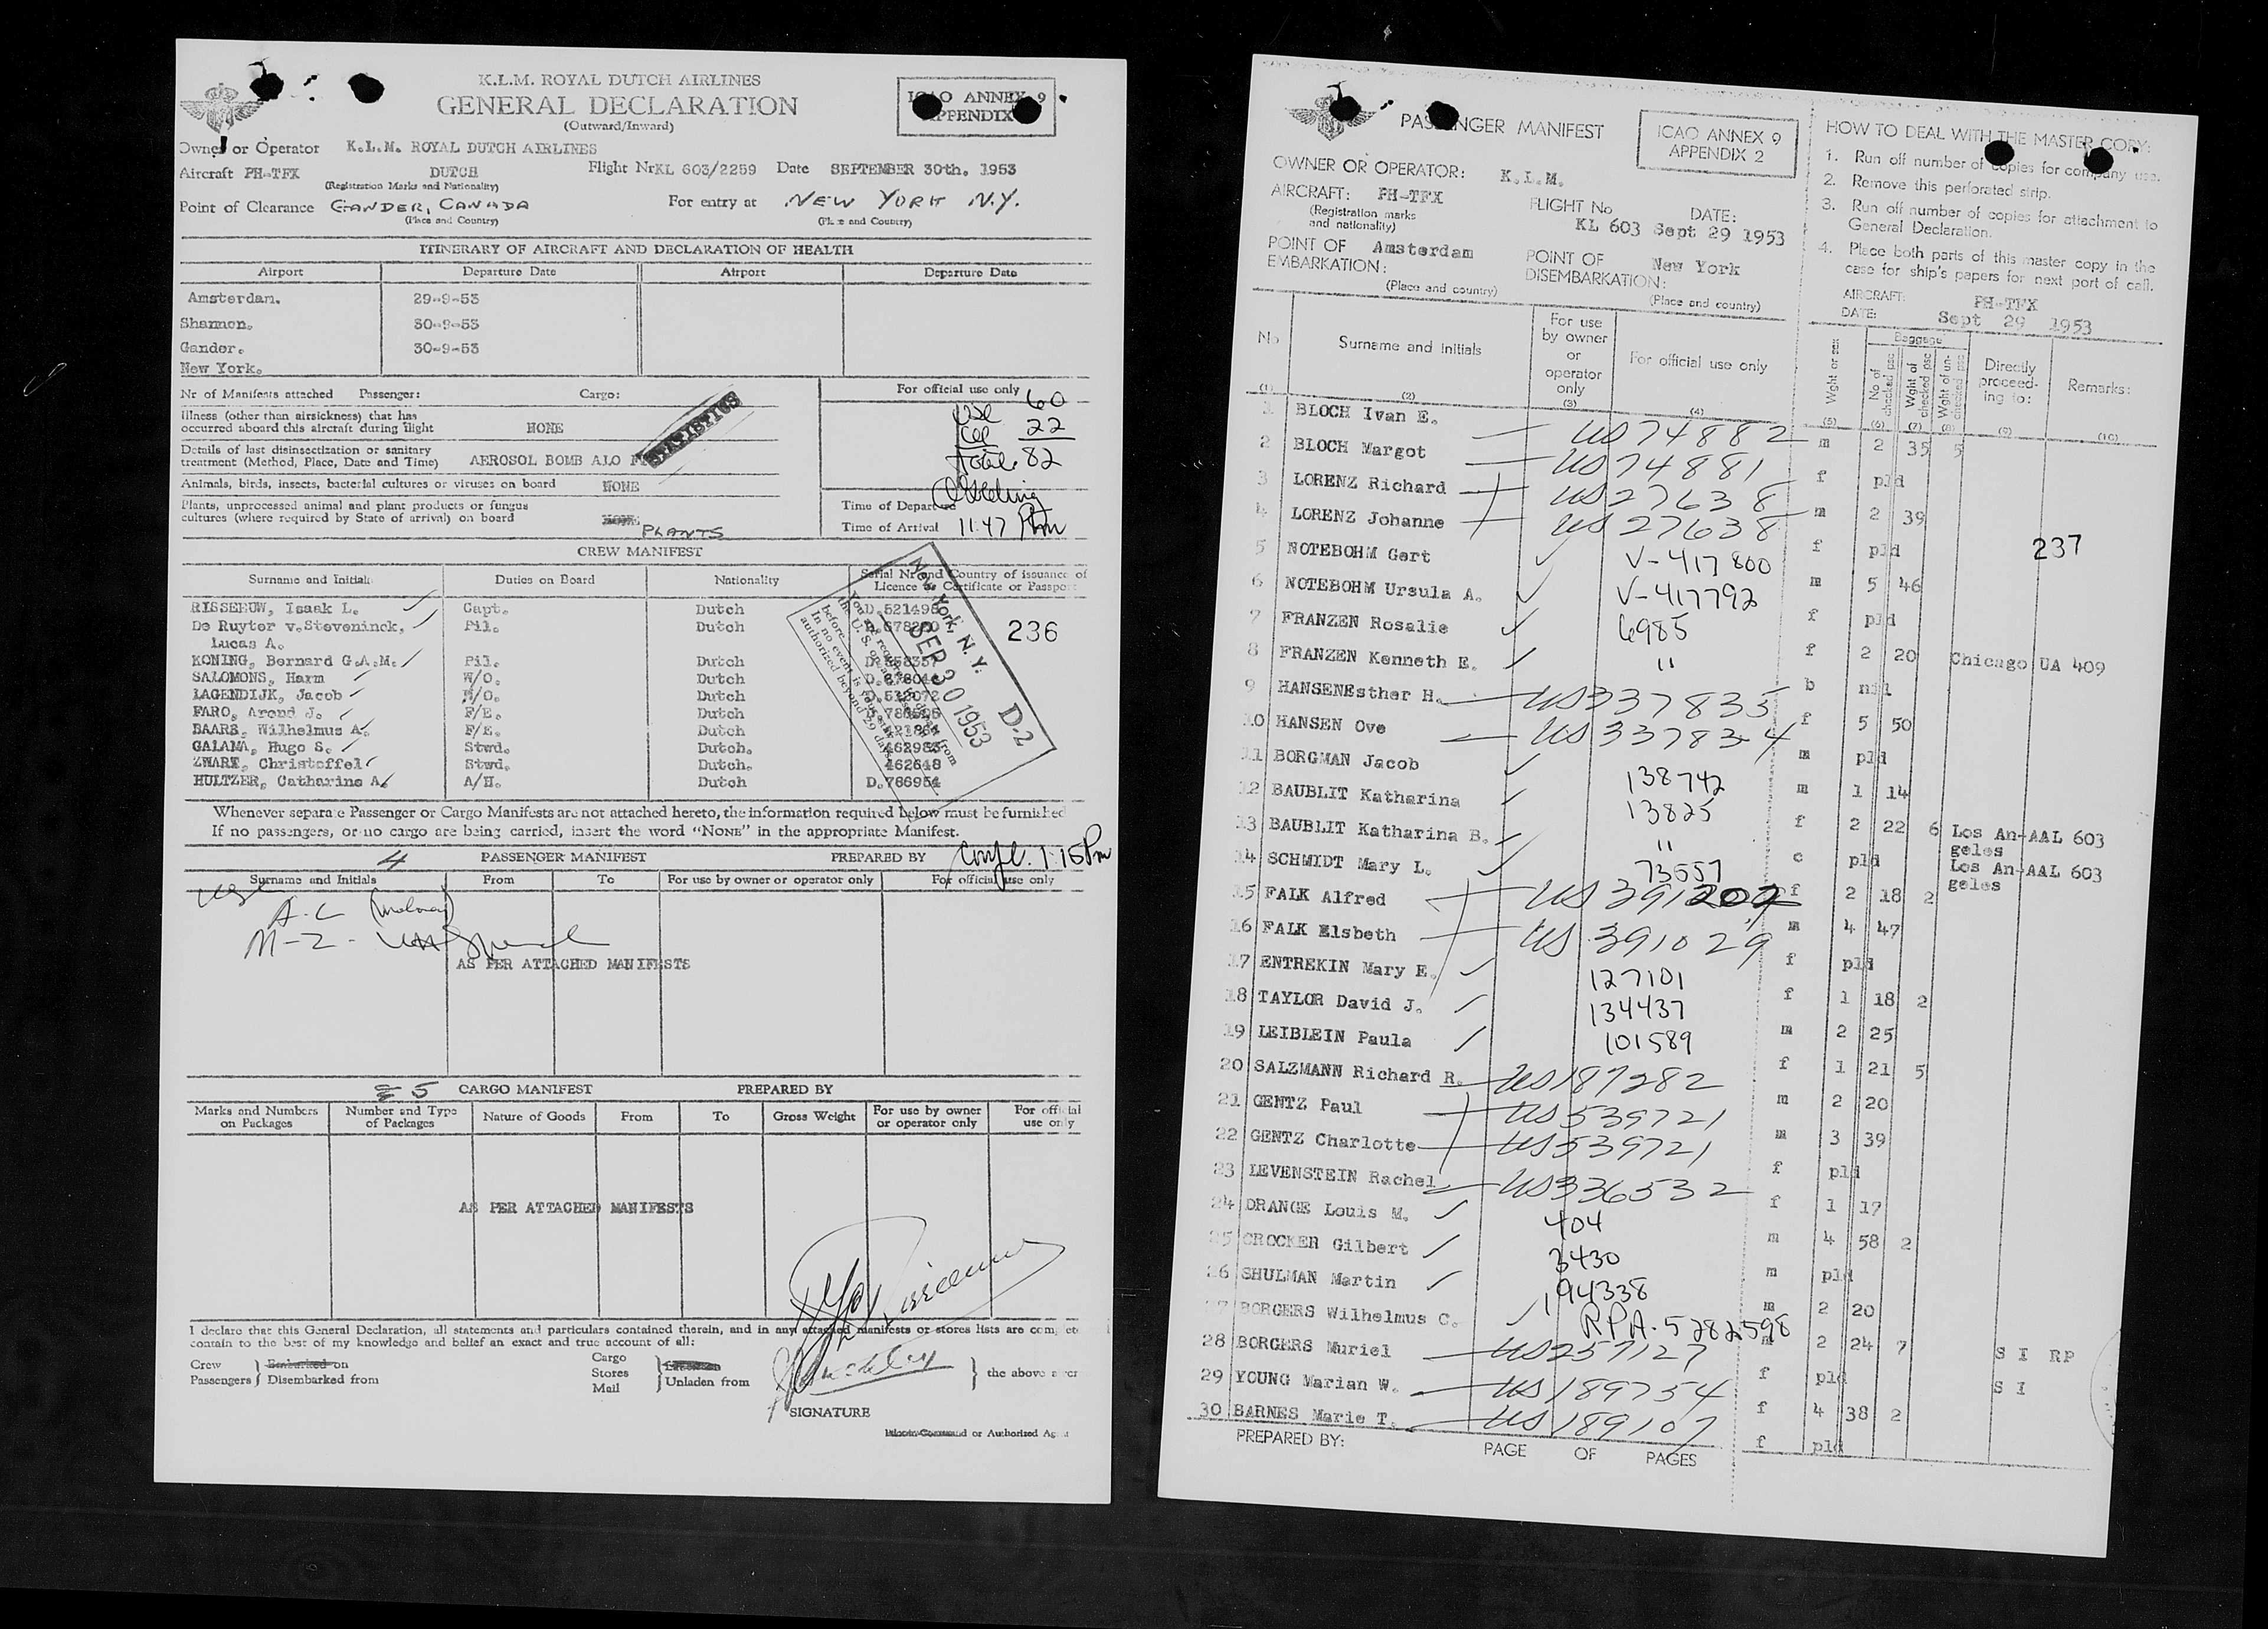 K.L.M. ROYAL DUTCH AIRLINES
GENERAL DECLARATION
(Outward/Inward)
ICAO ANNEX 9
APPENDIX
Owner or Operator K.L.M. ROYAL DUTCH AIRLINES
Aircraft PH-TFX DUTCH Flight Nr KL 603/2259 Date SEPTEMBER 30th. 1953
(Registration Marks and Nationality)
Point of Clearance GANDER, CANADA For entry at NEW YORK N.Y.
(Place and Country) (Place and Country)
ITINERARY OF AIRCRAFT AND DECLARATION OF HEALTH
Airport Departure Date Airport Departure Date
Amsterdam. 29-9-53
Shannon. 30-9-53
Gander. 30-9-53
New York.
Nr of Manifests attached Passenger: Cargo:
For official use only
60
22
Total 82
STATISTICS
Illness (other than airsickness) that has
occurred aboard this aircraft during flight NONE
Details of last disinsectization or sanitary
treatment (Method, Place, Date and Time) AEROSOL BOMB ALO
Animals, birds, insects, bacterial cultures or viruses on board NONE
Plants, unprocessed animal and plant products or fungus
cultures (where required by State of arrival) on board NONE PLANTS
Time of Departure
Time of Arrival 11:47 Pm
CREW MANIFEST
Surname and Initials Duties on Board Nationality Serial Nr and Country of issuance of
Licence or Certificate or Passport
RISSEEUW, Isaak L. Capt. Dutch D.521498
De Ruyter v.Steveninck, Pil. Dutch
Lucas A.
KONING, Bernard G.A.M. Pil. Dutch
SALOMONS, Harm W/O. Dutch
LAGENDIJK, Jacob W/O. Dutch
FARO, Arend J. F/E. Dutch
BAARS, Wilhelmus A. F/E. Dutch
GALAMA, Hugo S. Stwd. Dutch. 462983
ZWART, Christoffel Stwd. Dutch. 462648
HULTZER, Catharina A. A/H. Dutch D.786954
236
New York, N.Y.
SEP 30 1953
D-2
Whenever separate Passenger or Cargo Manifests are not attached hereto, the information required below must be furnished
If no passengers, or no cargo are being carried, insert the word "NONE" in the appropriate Manifest.
4 PASSENGER MANIFEST PREPARED BY 1:15 Pm
Surname and Initials From To For use by owner or operator only For official use only
AS PER ATTACHED MANIFESTS
5 CARGO MANIFEST PREPARED BY
Marks and Numbers on Packages Number and Type of Packages Nature of Goods From To Gross Weight For use by owner or operator only For official use only
AS PER ATTACHED MANIFESTS
I declare that this General Declaration, all statements and particulars contained therein, and in any attached manifests or stores lists are
contain to the best of my knowledge and belief an exact and true account of all:
Crew Embarked on Cargo
Passengers Disembarked from Stores
Mail Unladen from the above
SIGNATURE
or Authorized
PASSENGER MANIFEST
ICAO ANNEX 9
APPENDIX 2
OWNER OR OPERATOR: K.L.M.
AIRCRAFT: PH-TFX FLIGHT No DATE:
(Registration marks
and nationality) KL 603 Sept 29 1953
POINT OF Amsterdam POINT OF New York
EMBARKATION: DISEMBARKATION:
(Place and country) (Place and country)
HOW TO DEAL WITH THE MASTER COPY:
1. Run off number of copies for company use.
2. Remove this perforated strip.
3. Run off number of copies for attachment to
General Declaration.
4. Place both parts of this master copy in the
case for ship's papers for next port of call.
AIRCRAFT: PH-TFX
DATE: Sept 29 1953
No Surname and Initials For use by owner or operator only For official use only Wght or sex Baggage No of checked psc Wght of checked psc Wght of un-checked psc Directly proceed-ing to: Remarks:
(1) (2) (3) (4) (5) (6) (7) (8) (9) (10)
1 BLOCH Ivan E. US 74882 m 2 35 5
2 BLOCH Margot US 74881 f pld
3 LORENZ Richard US 27638 m 2 39
4 LORENZ Johanne US 27638 f pld
237
5 NOTEBOHM Gert V-417800 m 5 46
6 NOTEBOHM Ursula A. V-417792 f pld
7 FRANZEN Rosalie 6985 f 2 20 Chicago UA 409
8 FRANZEN Kenneth E. " b nil
9 HANSEN Esther H. US337835 f 5 50
10 HANSEN Ove US337834 m pld
11 BORGMAN Jacob 138742 m 1 14
12 BAUBLIT Katharina 13825 f 2 22 6 Los An-geles AAL 603
13 BAUBLIT Katharina B. " c pld Los An-geles AAL 603
14 SCHMIDT Mary L. 73557 f 2 18 2
15 FALK Alfred m 4 47
16 FALK Elsbeth US 391029 f pld
17 ENTREKIN Mary E. 127101 f 1 18 2
18 TAYLOR David J. 134437 m 2 25
19 LEIBLEIN Paula 101589 f 1 21 5
20 SALZMANN Richard R. US187282 m 2 20
21 GENTZ Paul US539721 m 3 39
22 GENTZ Charlotte US539721 f pld
23 LEVENSTEIN Rachel US336532 f 1 17
24 DRANGE Louis M. 404 m 4 58 2
25 CROCKER Gilbert 3430 m pld
26 SHULMAN Martin 194338 m 2 20
27 BORGERS Wilhelmus C. RPA-5282598 m 2 24 7 S I RP
28 BORGERS Muriel US257127 f pld S I
29 YOUNG Marian W. US189754 f 4 38 2
30 BARNES Marie T. US189107 f pld
PREPARED BY: PAGE OF PAGES